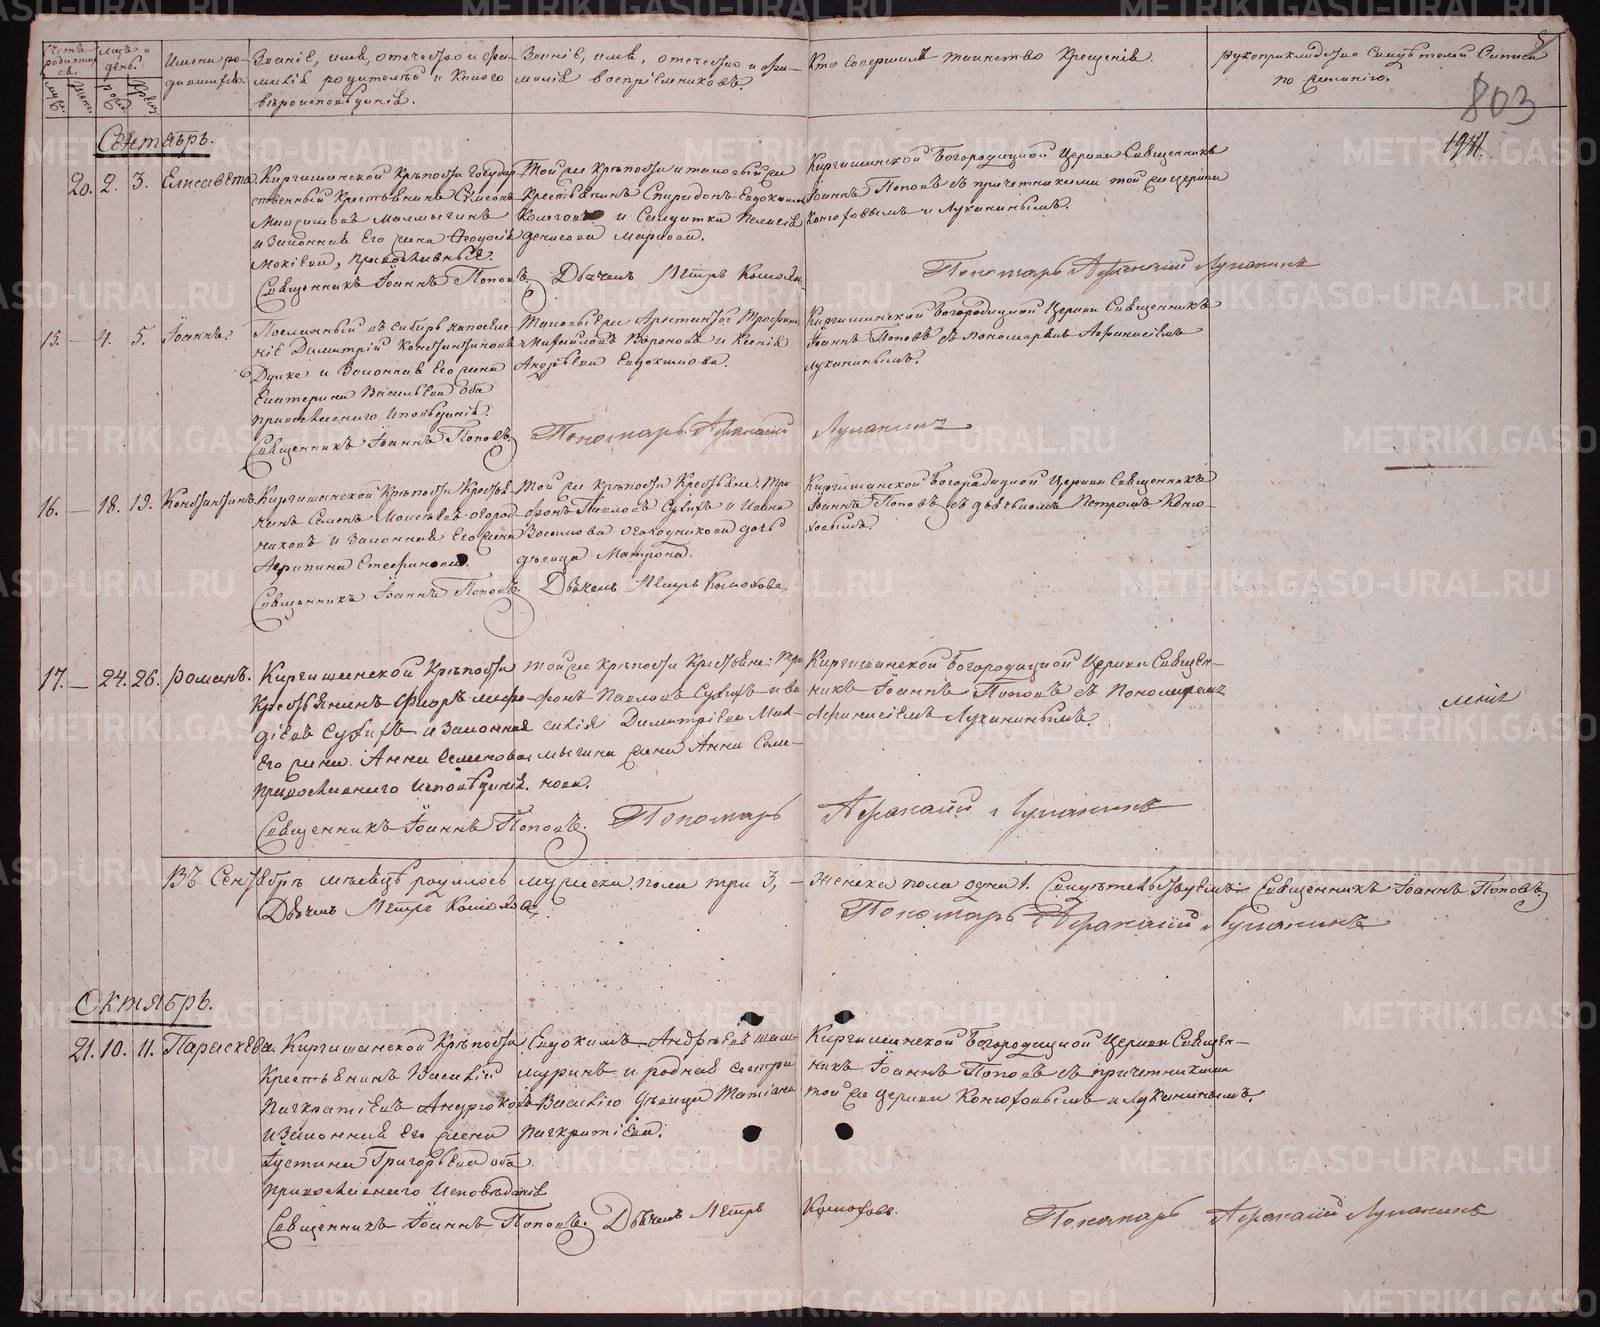 Счетъ родившихся.
муж. женс.
Мцъ и день.
рожд. крещ.
Имена родившихся.
Званіе, имя, отечество и фамилія родителей и какого вѣроисповѣданія.
Званіе, имя, отечество и фамилія воспріемниковъ.
Кто совершалъ таинство Крещенія.
рукоприкладство свидѣтелей записи по желанію.
803
1941
Сентябрь.
20. 2. 3. Елисавета.
Киргишанской Крѣпости Государ
ственный Крестьянинъ Симеонъ
и Законная Его жена Ѳеодосія
Мокіева, православные.
Священникъ Іоаннъ Поповъ.
Той же Крѣпости и таковый же
Крестьянинъ Спиридонъ Евдокимов
и Солдатка Пелагія
Денисова Маркова.
Дьячекъ Петръ
Киргишанской Богородицкой Церкви Священникъ
Іоаннъ Поповъ съ причетниками той же церкви
и Луканинымъ.
Пономарь Афанасий Луканинъ
15. — 4. 5. Іоаннъ.
Посланный въ Сибирь на поселе
ніе Димитрій Константиновъ
и Законная Его жена
Екатерина Васильева Оба
православнаго Исповѣданія.
Священникъ Іоаннъ Поповъ
Таковые же Арестанты Трофимъ
Михайловъ Вороновъ и Ксенія
Андреева Евдокимова.
Киргишанской Богородицкой Церкви Священникъ
Іоаннъ Поповъ съ пономаремъ Афанасіемъ
Луканинымъ.
Пономарь Афанасий Луканинъ
16. — 18. 19. Константинъ
Киргишанской Крѣпости Крестья
нинъ Семенъ Моисѣевъ Огород
никовъ и Законная Его жена
Агрипина Стефанова.
Священникъ Іоаннъ Поповъ.
Той же крѣпости Крестьяне: Три
фонъ Павловъ Сухихъ и Ивана
Огородникова дочь
дѣвица Матрона.
Дьячекъ Петръ
Киргишанской Богородицкой Церкви Священникъ
Іоаннъ Поповъ съ дьячкомъ Петромъ
17. — 24. 26. Романъ.
Киргишанской Крѣпости
Крестьянинъ Федоръ Мефо
діевъ Сухихъ и Законная
Его жена Анна Семенова
православнаго Исповѣданія.
Священникъ Іоаннъ Поповъ.
Той же Крѣпости Крестьяне: Три
фонъ Павловъ Сухихъ и Ва
силія Димитріева Мал
мыгина жена Анна Семе
нова.
Киргишанской Богородицкой Церкви Священ
никъ Іоаннъ Поповъ съ Пономаремъ
Афанасіемъ Луканинымъ.
Пономарь Афанасий Луканинъ
Въ Сентябрѣ мѣсяцѣ родилось мужеска пола три 3, — Женска пола одна 1. Свидѣтельствуемъ: Священникъ Іоаннъ Поповъ
Дьячекъ Петръ
Пономарь Афанасий Луканинъ
Октябрь.
21. 10. 11. Параскева.
Киргишанской Крѣпости
Крестьянинъ Василій
Панкратіевъ
и Законная Его жена
Іустина Григорьева оба
православнаго Исповѣданія
Священникъ Іоаннъ Поповъ.
Евдокимъ Андреевъ
и родная сестра
Василія дѣвица Татіана
Панкратіева.
Дьячекъ Петръ
Киргишанской Богородицкой Церкви Священ
никъ Іоаннъ Поповъ съ причетниками
той же церкви и Луканинымъ.
Пономарь Афанасий Луканинъ
METRIKI.GASO-URAL.RU